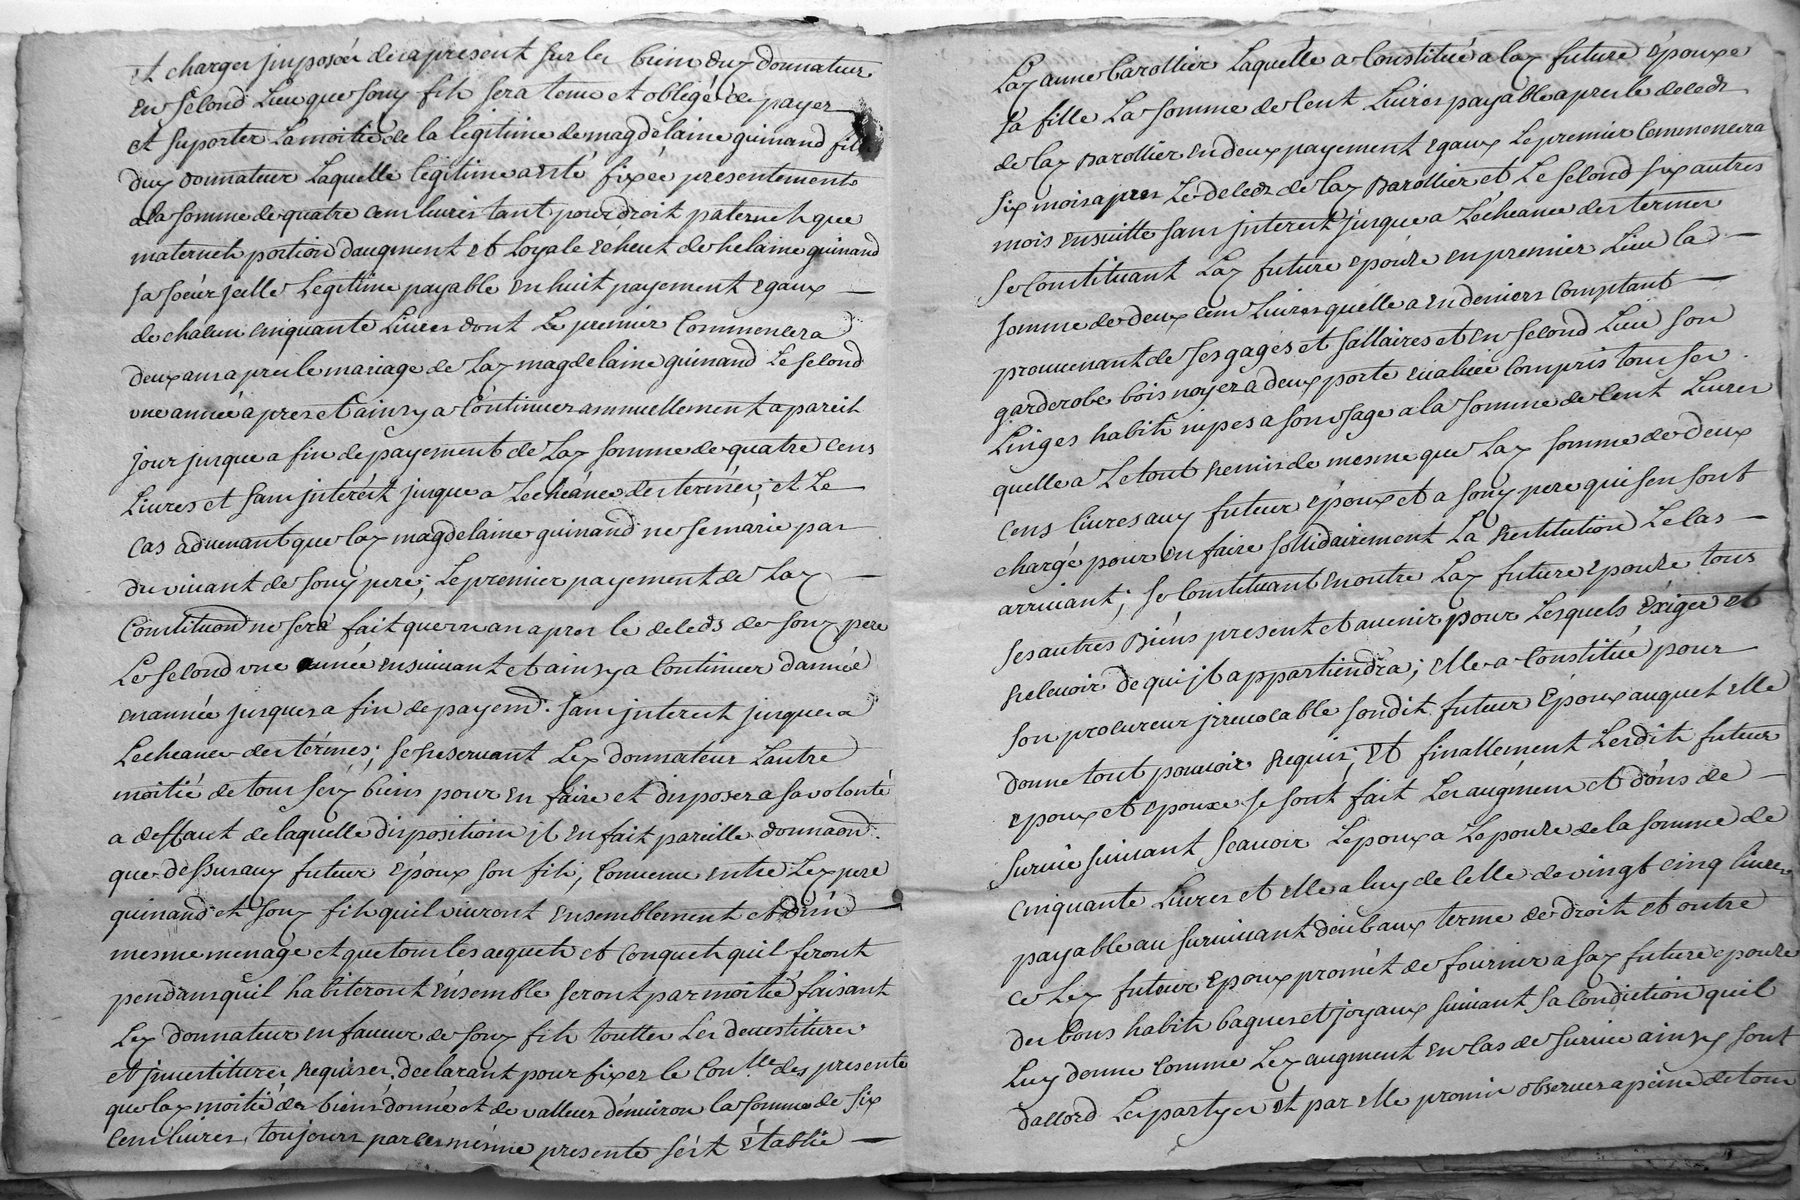 et charges jmposées dèsapresent sur les biens dud donnateur
en second Lieu que sond fils sera tenu et obligé de payer
et suporter La moitié de la legitime de magdelaine guinand fille
dud donnateur Laquelle legitime a esté fixée presentement
a la somme de quatre cens livres tant pour droit paternels que
maternels portion daugment et Loyale echeut de helaine guinand
sa soeur jcelle Legitime payable en huit payement egaux
de chacun cinquante Livres dont Le premier Commencera
deux ans apres le mariage de Lad magdelaine guinand Le second
une année apres et ainsy a Continuer annuellement a pareil
jour jusque a fin de payement de Lad somme de quatre cens
Livres et sans jnterest jusque a Lecheance des termes; et Le
cas advenant que lad magdelaine guinand ne se marie pas
du vivant de sond pere; Le premier payement de Lad
Constituond ne sera fait que un an apres le deceds de sond pere
Le second une année ensuivant et ainsy a Continuer dannée
en année jusques a fin de payemd. sans jnterest jusques a
Lecheance des termes; se reservant Led donnateur Lautre
moitié de tous sesd biens pour en faire et disposer a sa volonté
a deffaut de laquelle disposition jl en fait pareille donnaond.
que dessus aud futeur Epoux son fils, Convenu entre Led pere
guinand et sond fils quil vivront ensemblement et dun
mesme menage et que tous les acquets et Conquets quil feront
pendans quil habiteront ensemble seront par moitié faisant
Led donnateur en faveur de sond fils touttes Les devestitures
et jnvestitures requises, declarant pour fixer le Conlle des presente
que lad moitié des biens donné et de valleur denviron la somme de six
Cens livres, toujours par ces mesme presente sest établie
Lad anne Barollier Laquelle a Constitué a lad future épouse
sa fille La somme de Cent Livres payable apres le deceds
de lad Barollier en deux payement egaux Le premier Commencera
six mois apres Le deceds de lad Barollier et Le second six autres
mois ensuitte sans jnterest jusque a Lecheance des termes
se Constituant Lad future epouse en premier Lieu la
somme de deux cens Livres quelle a en deniers Comptant
provenant de ses gages et sallaires et en second Lieu son
garderobe bois noyer a deux porte evaluée Compris tous ses
Linges habits nipes a son usage a la somme de Cent Livres
quelle a Le tout remis de mesme que Lad somme de deux
cens livres aud futeur époux et a sond pere qui sen sont
chargé pour en faire sollidairement La restitution Le cas
arrivant; se Constituant en outre Lad future epouse tous
ses autres Biens present et avenir pour Lesquels exiger et
recevoir de qui jl appartiendra; elle a Constitué pour
son procureur jrrevocable sondit futeur Epoux auquel elle
donne tout pouvoir requis; et finallement Lesdits futeur
epoux et epouse se sont fait Les augmens et dons de
survie suivant Scavoir Lepoux a Lepouse de la somme de
cinquante Livres et elle a luy de Celle de vingt cinq livres
payable au survivant diceux aux terme de droit et outre
ce Led futeur epoux promet de fournir a sad future epouse
des bons habits bagues et joyaux suivant sa Condiction quil
Luy donne Comme Led augment en Cas de survie ainsy sont
daccord Les partyes et par elle promis observer a peine de tous